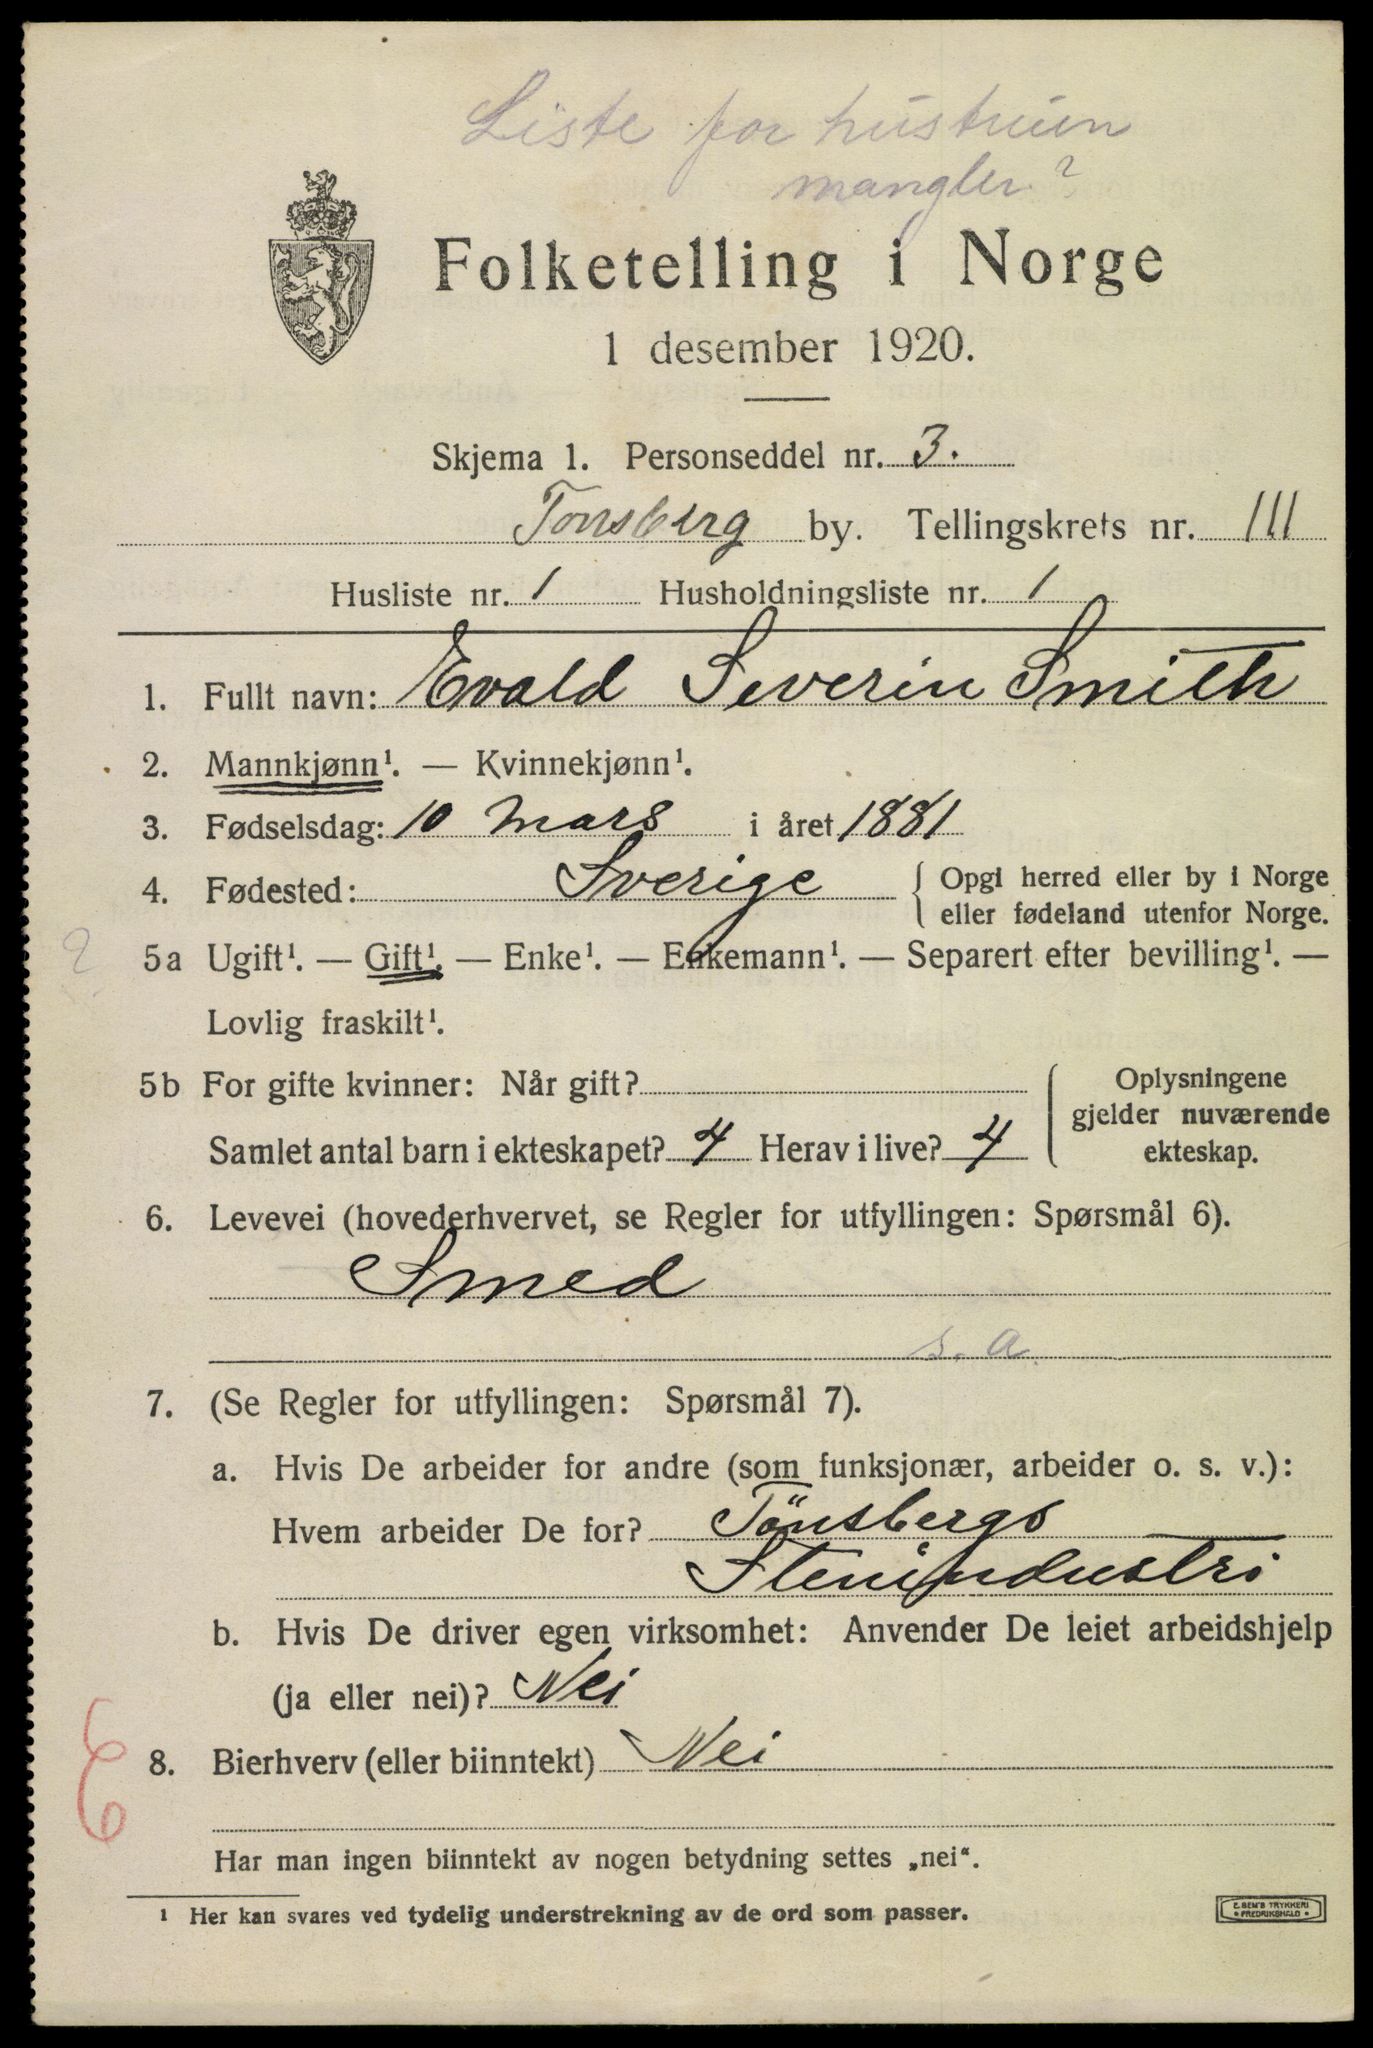 Liste for hustruen
mangler?
Folketelling i Norge
1 desember 1920.
Skjema 1. Personseddel nr. 3.
Tønsberg by. Tellingskrets nr. III
Husliste nr. 1 Husholdningsliste nr. 1
1. Fullt navn: Evald Severin Smith
2. Mannkjønn¹. — Kvinnekjønn¹.
3. Fødselsdag: 10 Mars i året 1881
4. Fødested: Sverige { Opgi herred eller by i Norge
eller fødeland utenfor Norge.
? 5a Ugift¹. — Gift¹. — Enke¹. — Enkemann¹. — Separert efter bevilling¹. —
Lovlig fraskilt¹.
5b For gifte kvinner: Når gift?
Samlet antal barn i ekteskapet? 4 Herav i live? 4
Oplysningene
gjelder nuværende
ekteskap.
6. Levevei (hovederhvervet, se Regler for utfyllingen: Spørsmål 6).
Smed
s. a.
7. (Se Regler for utfyllingen: Spørsmål 7).
a. Hvis De arbeider for andre (som funksjonær, arbeider o. s. v.):
Hvem arbeider De for? Tönsbergs
Stenindustri
b. Hvis De driver egen virksomhet: Anvender De leiet arbeidshjelp
(ja eller nei)? Nei
8. Bierhverv (eller biinntekt) Nei
Har man ingen biinntekt av nogen betydning settes „nei“.
¹ Her kan svares ved tydelig understrekning av de ord som passer.
E. SEM'S TRYKKERI
FREDRIKSHALD